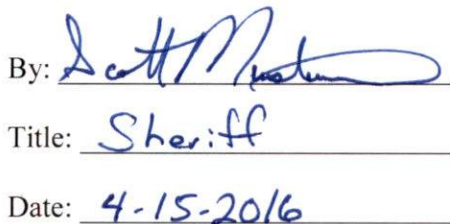 By: Scott
Title: Sheriff
Date: 4-15-2016